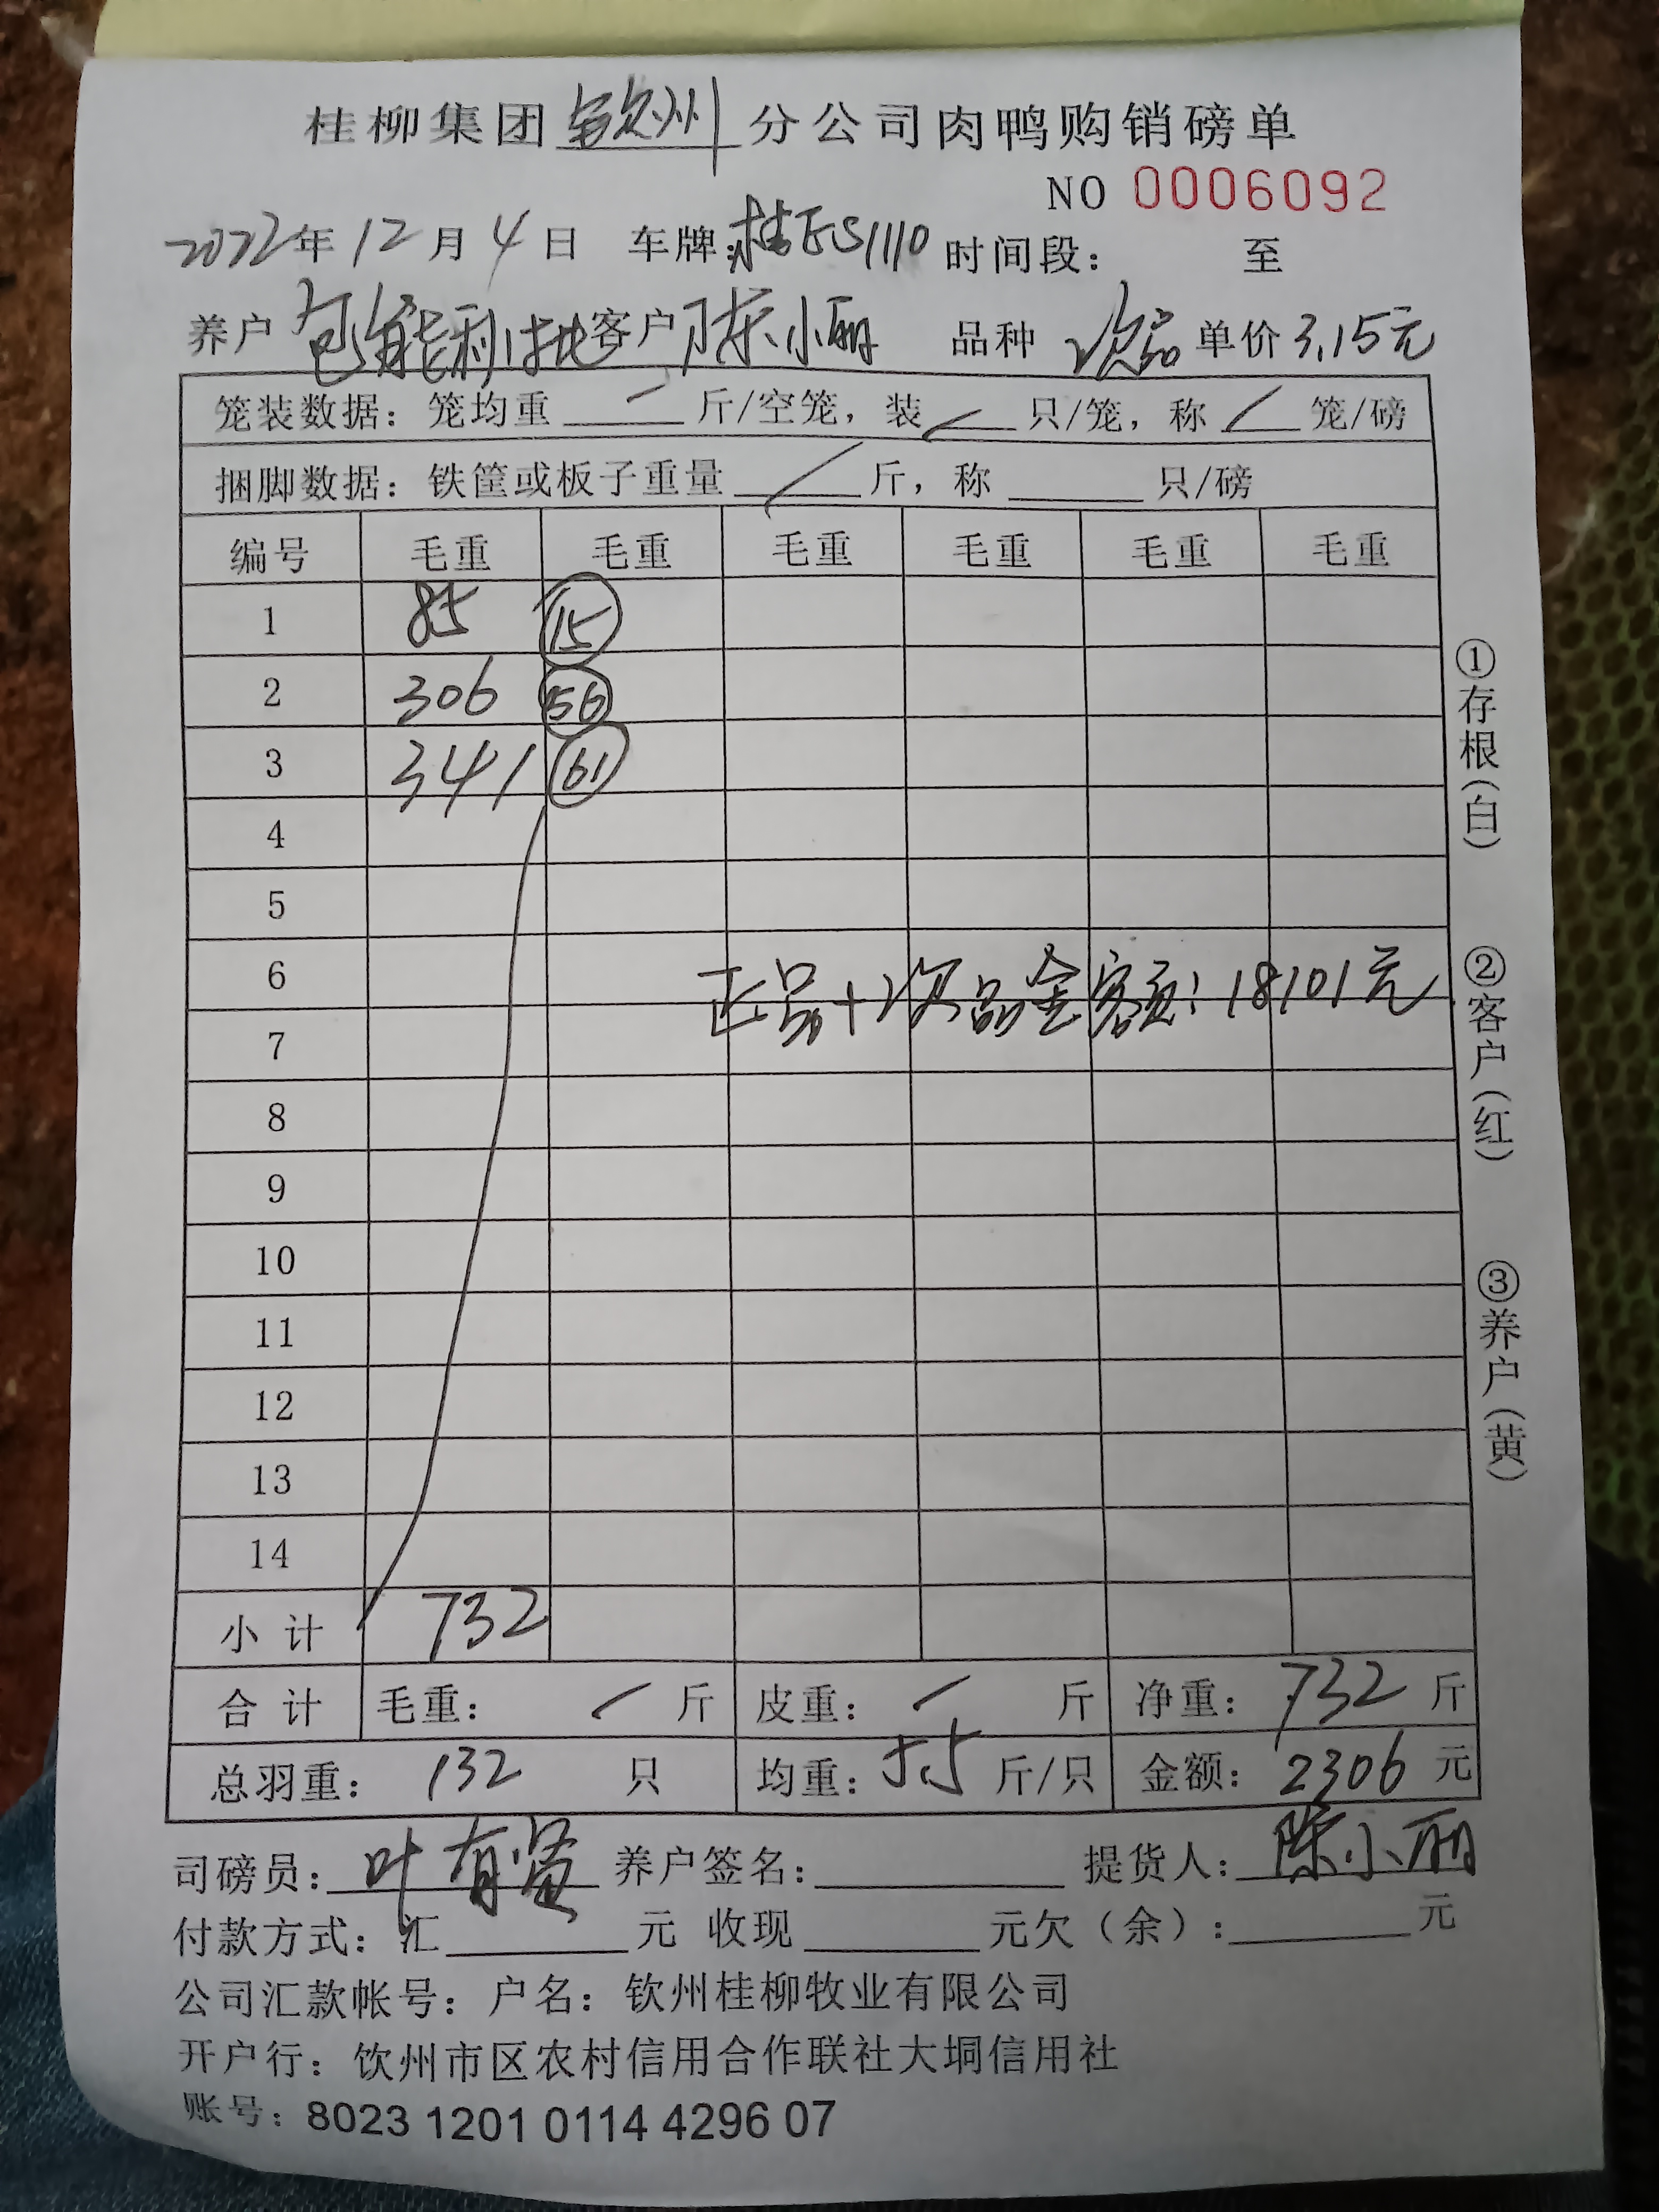 桂柳集团钦州分公司肉鸭购销磅单
NO 0006092
2022年12月4日 车牌:桂ES1110 时间段: 至
养户 包能利 客户 陈小丽 品种 次品 单价 3.15元
笼装数据: 笼均重 斤/空笼, 装 只/笼, 称 笼/磅
捆脚数据: 铁筐或板子重量 斤, 称 只/磅
编号 毛重 毛重 毛重 毛重 毛重 毛重
1 85 15
2 306 56
3 341 61
4
5
6
正品+次品金额:18101元
7
8
9
10
11
12
13
14
小计 732
合计 毛重: 斤 皮重: 斤 净重: 732 斤
总羽重: 132 只 均重: 5.5 斤/只 金额: 2306 元
司磅员: 叶有贤 养户签名: 提货人: 陈小丽
付款方式: 汇 元 收现 元欠(余): 元
公司汇款帐号: 户名: 钦州桂柳牧业有限公司
开户行: 钦州市区农村信用合作联社大垌信用社
账号: 8023 1201 0114 4296 07
①存根(白)
②客户(红)
③养户(黄)